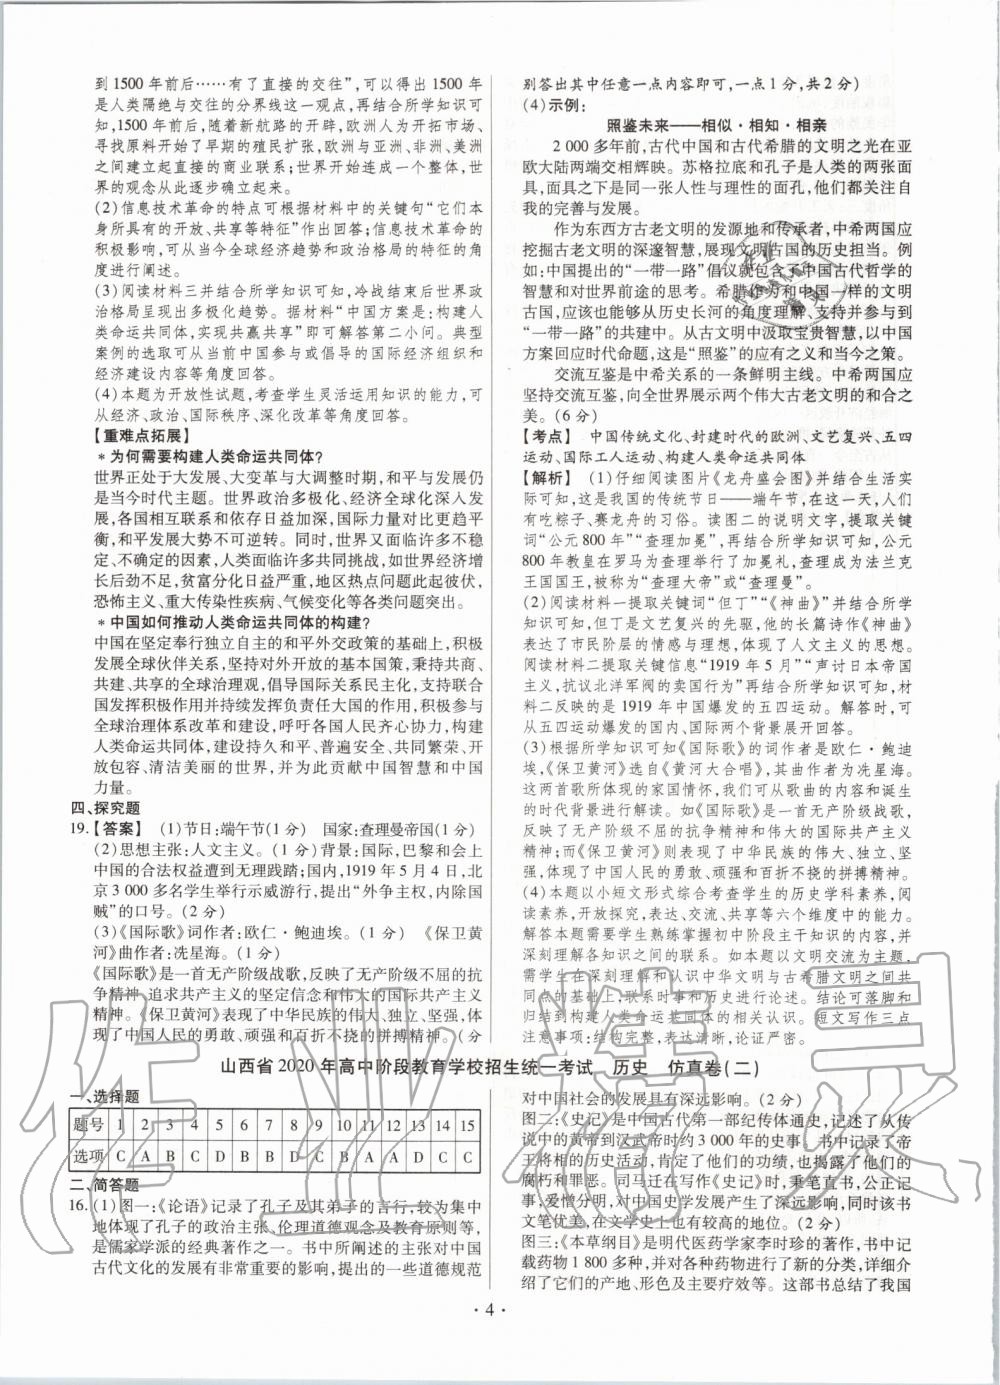 到 1500 年前后……有了直接的交往”，可以得出 1500 年
是人类隔绝与交往的分界线这一观点，再结合所学知识可
知，1500 年前后，随着新航路的开辟，欧洲人为开拓市场、
寻找原料开始了早期的殖民扩张，欧洲与亚洲、非洲、美洲
之间建立起直接的商业联系；世界开始连为一个整体，世
界的观念从此逐步确立起来。
(2)信息技术革命的特点可根据材料中的关键句“它们本
身所具有的开放、共享等特征”作出回答；信息技术革命的
积极影响，可从当今全球经济趋势和政治格局的特征的角
度进行阐述。
(3)阅读材料三并结合所学知识可知，冷战结束后世界政
治格局呈现出多极化趋势。据材料“中国方案是：构建人
类命运共同体，实现共赢共享”即可解答第二小问。典型
案例的选取可从当前中国参与或倡导的国际经济组织和
建设内容等角度回答。
(4)本题为开放性试题，考查学生灵活运用知识的能力，可
从经济、政治、国际秩序、深化改革等角度回答。
【重难点拓展】
＊为何需要构建人类命运共同体？
世界正处于大发展、大变革与大调整时期，和平与发展仍
是当今时代主题。世界政治多极化、经济全球化深入发
展，各国相互联系和依存日益加深，国际力量对比更趋平
衡，和平发展大势不可逆转。同时，世界又面临许多不稳
定、不确定的因素，人类面临许多共同挑战，如世界经济增
长后劲不足，贫富分化日益严重，地区热点问题此起彼伏，
恐怖主义、重大传染性疾病、气候变化等各类问题突出。
＊中国如何推动人类命运共同体的构建？
中国在坚定奉行独立自主的和平外交政策的基础上，积极
发展全球伙伴关系，坚持对外开放的基本国策，秉持共商、
共建、共享的全球治理观，倡导国际关系民主化，支持联合
国发挥积极作用并持续发挥负责任大国的作用，积极参与
全球治理体系改革和建设，呼吁各国人民齐心协力，构建
人类命运共同体，建设持久和平、普遍安全、共同繁荣、开
放包容、清洁美丽的世界，并为此贡献中国智慧和中国
力量。
四、探究题
19.【答案】 (1)节日：端午节(1 分) 国家：查理曼帝国(1 分)
(2)思想主张：人文主义。(1 分)背景：国际，巴黎和会上
中国的合法权益遭到无理践踏；国内，1919 年 5 月 4 日，北
京 3 000 多名学生举行示威游行，提出“外争主权，内除国
贼”的口号。(2 分)
(3)《国际歌》词作者：欧仁·鲍迪埃。(1 分) 《保卫黄
河》曲作者：冼星海。(1 分)
《国际歌》是一首无产阶级战歌，反映了无产阶级不屈的抗
争精神，追求共产主义的坚定信念和伟大的国际共产主义
精神。《保卫黄河》表现了中华民族的伟大、独立、坚强，体
现了中国人民的勇敢、顽强和百折不挠的拼搏精神。(分
别答出其中任意一点内容即可，一点 1 分，共 2 分)
(4)示例：
照鉴未来——相似·相知·相亲
2 000 多年前，古代中国和古代希腊的文明之光在亚
欧大陆两端交相辉映。苏格拉底和孔子是人类的两张面
具，面具之下是同一张人性与理性的面孔，他们都关注自
我的完善与发展。
作为东西方古老文明的发源地和传承者，中希两国应
挖掘古老文明的深邃智慧，展现文明古国的历史担当。例
如：中国提出的“一带一路”倡议就包含了中国古代哲学的
智慧和对世界前途的思考。希腊作为和中国一样的文明
古国，应该也能够从历史长河的角度理解、支持并参与到
“一带一路”的共建中。从古文明中汲取宝贵智慧，以中国
方案回应时代命题，这是“照鉴”的应有之义和当今之策。
交流互鉴是中希关系的一条鲜明主线。中希两国应
坚持交流互鉴，向全世界展示两个伟大古老文明的和合之
美。(6 分)
【考点】 中国传统文化、封建时代的欧洲、文艺复兴、五四
运动、国际工人运动、构建人类命运共同体
【解析】 (1)仔细阅读图片《龙舟盛会图》并结合生活实
际可知，这是我国的传统节日——端午节，在这一天，人们
有吃粽子、赛龙舟的习俗。读图二的说明文字，提取关键
词“公元 800 年”“查理加冕”，再结合所学知识可知，公元
800 年教皇在罗马为查理举行了加冕仪式，查理成为法兰克
王国国王，被称为“查理大帝”或“查理曼”。
(2)阅读材料一提取关键词“但丁”“《神曲》”并结合所学
知识可知，但丁是文艺复兴的先驱，他的长篇诗作《神曲》
表达了市民阶层的情感与理想，体现了人文主义的思想。
阅读材料二提取关键信息“1919 年 5 月”“声讨日本帝国
主义，抗议北洋军阀的卖国行为”再结合所学知识可知，材
料二反映的是 1919 年中国爆发的五四运动。解答时，可
从五四运动爆发的国内、国际两个背景展开回答。
(3)根据所学知识可知《国际歌》的词作者是欧仁·鲍迪
埃，《保卫黄河》选自《黄河大合唱》，其曲作者为冼星海。这
两首歌所体现的家国情怀，我们可以从歌曲的内容和诞生
的时代背景进行解读。如《国际歌》是一首无产阶级战歌，
反映了无产阶级不屈的抗争精神和伟大的国际共产主义
精神；而《保卫黄河》则表现了中华民族的伟大、独立、坚
强，体现了中国人民的勇敢、顽强和百折不挠的拼搏精神。
(4)本题以小短文形式综合考查学生的历史学科素养，阅
读素养，开放探究，表达、交流、共享等六个维度的能力。
解答本题需要学生熟练掌握初中阶段主干知识的内容，并
深刻理解各知识之间的联系。如本题以文明交流为主题，
需学生在深刻理解和认识中华文明与古希腊文明之间共
同点的基础上，联系时事和历史进行论述。结论可落脚和
归结到构建人类命运共同体的相关认识。短文写作三点
注意事项：结构完整，表达清晰，论证严密。
山西省 2020 年高中阶段教育学校招生统一考试 历史 仿真卷(二)
一、选择题
题号 1 2 3 4 5 6 7 8 9 10 11 12 13 14 15
选项 C A B C D A B D C B A A D C C
二、简答题
16. (1)图一：《论语》记录了孔子及其弟子的言行，较为集中
地体现了孔子的政治主张、伦理道德观念及教育原则等，
是儒家学派的经典著作之一。书中所阐述的主张对中国
古代文化的发展有非常重要的影响，提出的一些道德规范
对中国社会的发展具有深远影响。(2 分)
图二：《史记》是中国古代第一部纪传体通史，记述了从传
说中的黄帝到汉武帝时约 3 000 年的史事。书中记录了帝
王将相的历史活动，肯定了他们的功绩，也揭露了他们的
腐朽和罪恶。司马迁在编写《史记》时，秉笔直书，忠于史
事，爱憎分明，对中国史学发展产生了深远影响，同时该书
文笔优美，在文学史上也有较高的地位。(2 分)
图三：《本草纲目》是明代医药学家李时珍的著作，书中记
载药物 1 800 多种，并对各种药物进行了新的分类，详细介
绍了它们的产地、形色及主要疗效等。这部书总结了我国
·4·
作业